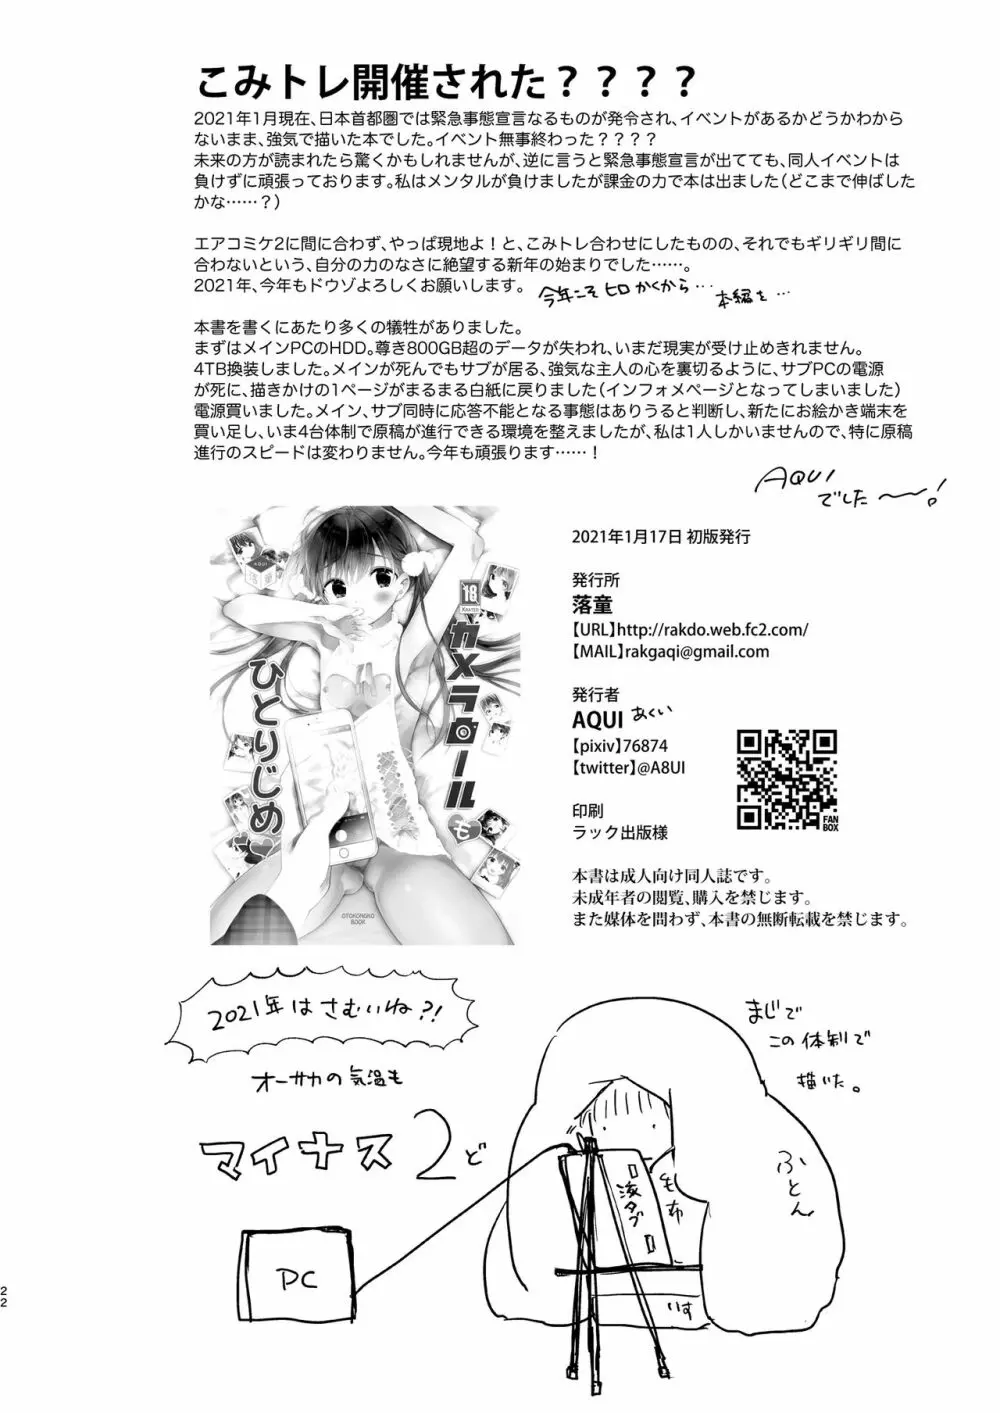 こみトレ開催された？？？？
2021年1月現在、日本首都圏では緊急事態宣言なるものが発令され、イベントがあるかどうかわから
ないまま、強気で描いた本でした。イベント無事終わった？？？？
未来の方が読まれたら驚くかもしれませんが、逆に言うと緊急事態宣言が出てても、同人イベントは
負けずに頑張っております。私はメンタルが負けましたが課金の力で本は出ました（どこまで伸ばした
かな……？）
エアコミケ2に間に合わず、やっぱ現地よ！と、こみトレ合わせにしたものの、それでもギリギリ間に
合わないという、自分の力のなさに絶望する新年の始まりでした……。
2021年、今年もドウゾよろしくお願いします。
今年こそヒロかくから…
本編を…
本書を書くにあたり多くの犠牲がありました。
まずはメインPCのHDD。尊き800GB超のデータが失われ、いまだ現実が受け止めきれません。
4TB換装しました。メインが死んでもサブが居る、強気な主人の心を裏切るように、サブPCの電源
が死に、描きかけの1ページがまるまる白紙に戻りました（インフォメページとなってしまいました）
電源買いました。メイン、サブ同時に応答不能となる事態はありうると判断し、新たにお絵かき端末を
買い足し、いま4台体制で原稿が進行できる環境を整えましたが、私は1人しかいませんので、特に原稿
進行のスピードは変わりません。今年も頑張ります……！
AQUI
でした〜！
18
X-RATED
カメラロールも
ひとりじめ
OTOKONOKO
BOOK
2021年1月17日 初版発行
発行所
落童
【URL】http://rakdo.web.fc2.com/
【MAIL】rakgaqi@gmail.com
発行者
AQUI あくい
【pixiv】76874
【twitter】@A8UI
FAN
BOX
印刷
ラック出版様
本書は成人向け同人誌です。
未成年者の閲覧、購入を禁じます。
また媒体を問わず、本書の無断転載を禁じます。
2021年はさむいね?!
オーサカの気温も
マイナス2ど
PC
まじで
この体制で
描いた。
ふとん
毛布
液タブ
いす
22